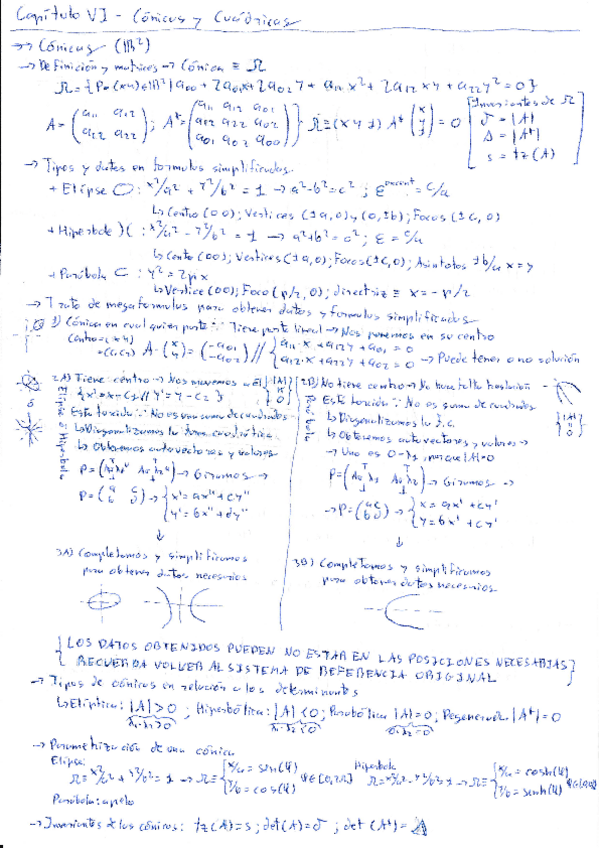 Capítulo VI - Cónicas y Cuádricas
→ Cónicas (ℝ²)
→ Definición y matrices → Cónica ≡ Ω
Ω = {P=(x,y)∈ℝ² | a₀₀ + 2a₀₁x + 2a₀₂y + a₁₁x² + 2a₁₂xy + a₂₂y² = 0}
A = (a₁₁ a₁₂ / a₁₂ a₂₂); A* = (a₁₁ a₁₂ a₀₁ / a₁₂ a₂₂ a₀₂ / a₀₁ a₀₂ a₀₀) } Ω ≡ (x y 1) A* (x / y / 1) = 0
Invariantes de Ω
δ = |A|
Δ = |A*|
s = tz(A)
→ Tipos y datos en formulas simplificadas.
+ Elipse: x²/a² + y²/b² = 1 → a²-b²=c²; ε = c/a
↳ Centro (0 0); Vertices (±a, 0) y (0, ±b); Focos (±c, 0)
+ Hipérbole )( : x²/a² - y²/b² = 1 → a²+b²=c²; ε = c/a
↳ Centro (00); Vertices (±a,0); Focos (±c,0); Asintotas ±b/a x = y
+ Parábola ⊂ : y² = 2px
↳ Vertice (00); Foco (p/2, 0); directriz ≡ x = -p/2
→ Trato de megaformulas para obtener datos y formulas simplificadas
1) Cónica en cualquier parte ∵ Tiene parte lineal → Nos ponemos en su centro
A·(x / y) = (-a₀₁ / -a₀₂) // { a₁₁x + a₁₂y + a₀₁ = 0 / a₁₂x + a₂₂y + a₀₂ = 0 → Puede tener o no solución
2A) Tiene centro → Nos movemos a él
{x' = x-c₁ // y' = y-c₂}
Está torcida ∵ No es una suma de cuadrados
↳ Diagonalizamos la forma cuadrática
↳ Obtenemos autovectores y valores
→ Giramos →
P = (a c / b d) → { x' = ax''+cy'' / y' = bx''+dy''
Elipse o Hipérbola
2B) No tiene centro → No
Está torcida ∵ No es suma de cuadrados
↳ Diagonalizamos la f.c.
↳ Obtenemos autovectores y valores →
→ Uno es 0 → λ₂, porque |A|=0
→ Giramos →
Parábola
3A) Completamos y simplificamos
para obtener datos necesarios
3B) Completamos y simplificamos
para obtener datos necesarios
{ LOS DATOS OBTENIDOS PUEDEN NO ESTAR EN LAS POSICIONES NECESARIAS }
{ RECUERDA VOLVER AL SISTEMA DE REFERENCIA ORIGINAL }
→ Tipos de cónicas en relación a los determinantes
↳ Elíptica: |A|>0; Hiperbólica: |A|<0; Parabólica |A|=0; Degenerada |A*|=0
λ₁·λ₂>0 λ₁·λ₂<0 λ₁·λ₂=0
→ Parametrización de una cónica
Elipse:
Ω ≡ x²/a² + y²/b² = 1 → Ω ≡ { x/a = sen(φ) / y/b = cos(φ)
Hipérbola
Ω ≡ x²/a² - y²/b² = 1 → Ω ≡ { x/a = cosh(φ) / y/b = senh(φ)
Parábola: a pelo
→ Invariantes de las cónicas: tz(A)=s; det(A)=δ; det(A*)=Δ